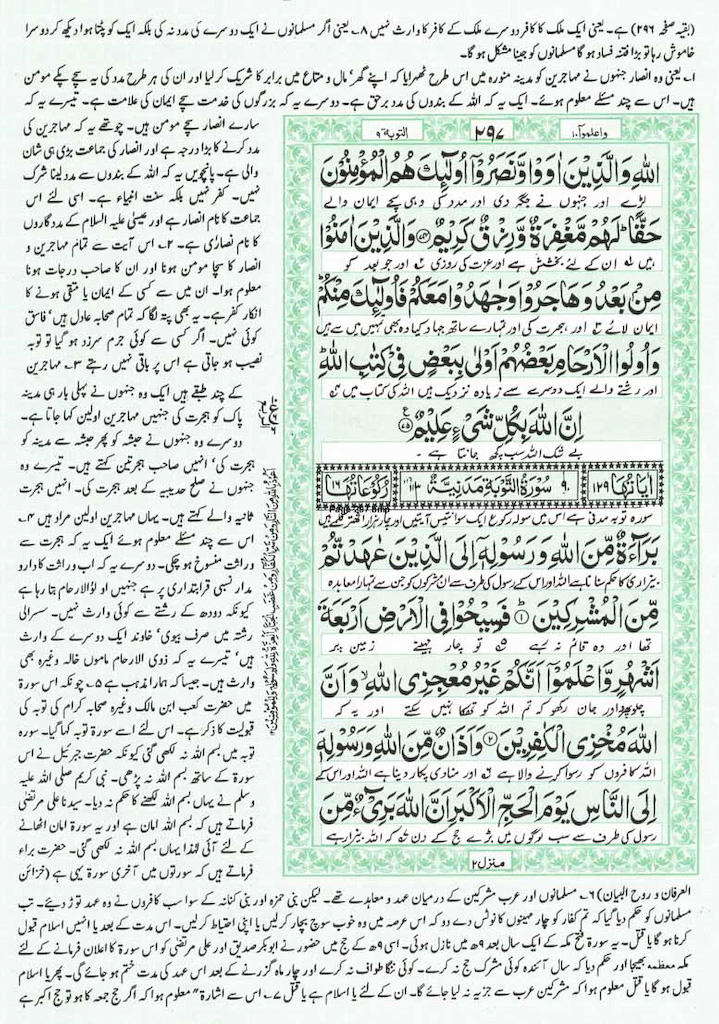 (بقیہ صفحہ ۲۹۶) ہے۔ یعنی ایک ملک کا کافر دوسرے ملک کے کافر کا وارث نہیں ۸۔ یعنی اگر مسلمانوں نے ایک دوسرے کی مدد نہ کی بلکہ ایک کو پٹتا ہوا دیکھ کر دوسرا
خاموش رہا تو بڑا فتنہ فساد ہو گا مسلمانوں کو جینا مشکل ہو گا۔
۱۔ یعنی وہ انصار جنہوں نے مہاجرین کو مدینہ منورہ میں اس طرح ٹھہرایا کہ اپنے گھر' مال و متاع میں برابر کا شریک کر لیا اور ان کی ہر طرح مدد کی یہ سچے پکے مومن
ہیں۔ اس سے چند مسئلے معلوم ہوئے۔ ایک یہ کہ اللہ کے بندوں کی مدد برحق ہے۔ دوسرے یہ کہ بزرگوں کی خدمت سچے ایمان کی علامت ہے۔ تیسرے یہ کہ
واعلموآ۱۰
۲۹۷
التوبۃ۹
اللهِ وَالَّذِينَ اٰوَوْا وَّنَصَرُوْٓا اُولٰٓئِكَ هُمُ الْمُؤْمِنُوْنَ
لڑے اور جنہوں نے جگہ دی اور مدد کی وہی سچے ایمان والے
حَقًّا ؕ لَهُمْ مَّغْفِرَةٌ وَّرِزْقٌ كَرِيْمٌ ۟ وَالَّذِيْنَ اٰمَنُوْا
ہیں ان کے لئے بخشش ہے اور عزت کی روزی اور جو بعد کو
مِنْۢ بَعْدُ وَهَاجَرُوْا وَجٰهَدُوْا مَعَكُمْ فَاُولٰٓئِكَ مِنْكُمْ ؕ
ایمان لائے اور ہجرت کی اور تمہارے ساتھ جہاد کیا وہ بھی تمہیں میں سے ہیں
وَاُولُوا الْاَرْحَامِ بَعْضُهُمْ اَوْلٰى بِبَعْضٍ فِيْ كِتٰبِ اللهِ ؕ
اور رشتے والے ایک دوسرے سے زیادہ نزدیک ہیں اللہ کی کتاب میں
اِنَّ اللهَ بِكُلِّ شَيْءٍ عَلِيْمٌ ۟
بے شک اللہ سب کچھ جانتا ہے ۔
اٰیَاتُهَا ۱۲۹
۹ سُوْرَةُ التَّوْبَةِ مَدَنِيَّةٌ ۱۱۳
رُكُوْعَاتُهَا ۱۶
سورہ توبہ مدنی ہے اس میں سولہ رکوع ایک سو انتیس آیتیں اور چار ہزار اٹھتر کلمے ہیں
Page-297.bmp
بَرَآءَةٌ مِّنَ اللهِ وَرَسُوْلِهٖٓ اِلَى الَّذِيْنَ عٰهَدْتُّمْ
بیزاری کا حکم سنانا ہے اللہ اور اس کے رسول کی طرف سے ان مشرکوں کو جن سے تمہارا معاہدہ
مِّنَ الْمُشْرِكِيْنَ ۟ فَسِيْحُوْا فِي الْاَرْضِ اَرْبَعَةَ
تھا اور وہ قائم نہ رہے تو چار مہینے زمین پر
اَشْهُرٍ وَّاعْلَمُوْٓا اَنَّكُمْ غَيْرُ مُعْجِزِي اللهِ ۙ وَاَنَّ
چلو پھرو اور جان رکھو کہ تم اللہ کو تھکا نہیں سکتے اور یہ کہ
اللهَ مُخْزِي الْكٰفِرِيْنَ ۟ وَاَذَانٌ مِّنَ اللهِ وَرَسُوْلِهٖٓ
اللہ کافروں کو رسوا کرنے والا ہے اور منادی پکار دینا ہے اللہ اور اس کے
اِلَى النَّاسِ يَوْمَ الْحَجِّ الْاَكْبَرِ اَنَّ اللهَ بَرِيْٓءٌ مِّنَ
رسول کی طرف سے سب لوگوں میں بڑے حج کے دن کہ اللہ بیزار ہے
منزل۲
سارے انصار سچے مومن ہیں۔ چوتھے یہ کہ مہاجرین کی
مدد کرنے کا بڑا درجہ ہے اور انصار کی جماعت بڑی ہی شان
والی ہے۔ پانچویں یہ کہ اللہ کے بندوں سے مدد لینا شرک
نہیں۔ کفر نہیں بلکہ سنت انبیاء ہے۔ اسی لئے اس
جماعت کا نام انصار ہے اور عیسیٰ علیہ السلام کے مددگاروں
کا نام نصارٰی ہے۔ ۲۔ اس آیت سے تمام مہاجرین و
انصار کا سچا مومن ہونا اور ان کا صاحب درجات ہونا
معلوم ہوا۔ ان میں سے کسی کے ایمان یا متقی ہونے کا
انکار کفر ہے۔ یہ بھی پتہ لگا کہ تمام صحابہ عادل ہیں' فاسق
کوئی نہیں۔ اگر کسی سے کوئی جرم سرزد ہو گیا تو توبہ
نصیب ہو جاتی ہے اس پر باقی نہیں رہتے ۳۔ مہاجرین
کے چند طبقے ہیں ایک وہ جنہوں نے پہلی بار ہی مدینہ
پاک کو ہجرت کی جنہیں مہاجرین اولین کہا جاتا ہے۔
دوسرے وہ جنہوں نے حبشہ کو پھر حبشہ سے مدینہ کو
ہجرت کی' انہیں صاحب ہجرتین کہتے ہیں۔ تیسرے وہ
جنہوں نے صلح حدیبیہ کے بعد ہجرت کی۔ انہیں ہجرت
ثانیہ والے کہتے ہیں۔ یہاں مہاجرین اولین مراد ہیں ۴۔
اس سے چند مسئلے معلوم ہوئے ایک یہ کہ ہجرت سے
وراثت منسوخ ہو چکی۔ دوسرے یہ کہ اب وراثت کا دار و
مدار نسبی قرابتداری پر ہے جنہیں اولوالارحام بتا رہا ہے
کیونکہ دودھ کے رشتے سے کوئی وارث نہیں۔ سسرالی
رشتہ میں صرف بیوی' خاوند ایک دوسرے کے وارث
ہیں' تیسرے یہ کہ ذوی الارحام ماموں خالہ وغیرہ بھی
وارث ہیں۔ جیسا کہ ہمارا مذہب ہے ۵۔ چونکہ اس سورۃ
میں حضرت کعب ابن مالک وغیرہ صحابہ کرام کی توبہ کی
قبولیت کا ذکر ہے۔ اس لئے اسے سورۃ توبہ کہا گیا۔ سورہ
توبہ میں بسم اللہ نہ لکھی گئی کیونکہ حضرت جبرئیل نے اس
سورۃ کے ساتھ بسم اللہ نہ پڑھی۔ نبی کریم صلی اللہ علیہ
وسلم نے یہاں بسم اللہ لکھنے کا حکم نہ دیا۔ سیدنا علی مرتضیٰ
فرماتے ہیں کہ بسم اللہ امان ہے اور یہ سورۃ امان اٹھانے
کے لئے آئی لہٰذا یہاں بسم اللہ نہ لکھی گئی۔ حضرت براء
فرماتے ہیں کہ سورتوں میں آخری سورۃ یہی ہے (خزائن
العرفان و روح البیان) ۶۔ مسلمانوں اور عرب مشرکین کے درمیان عہد و معاہدے تھے۔ لیکن بنی حمزہ اور بنی کنانہ کے سوا سب کافروں نے وہ عہد توڑ دیئے۔ تب
مسلمانوں کو حکم دیا گیا کہ تم کفار کو چار مہینوں کا نوٹس دے دو کہ اس عرصہ میں وہ خوب سوچ بچار کر لیں یا اپنی احتیاط کر لیں۔ اس مدت کے بعد یا انہیں اسلام قبول
کرنا ہو گا یا قتل۔ یہ سورۃ فتح مکہ کے ایک سال بعد ۹ھ میں نازل ہوئی۔ اسی ۹ھ کے حج میں حضور نے ابوبکر صدیق اور علی مرتضیٰ کو اس سورۃ کا اعلان فرمانے کے لئے
مکہ معظمہ بھیجا اور حکم دیا کہ سال آئندہ کوئی مشرک حج نہ کرے۔ کوئی ننگا طواف نہ کرے اور چار ماہ گزرنے کے بعد اس عہد کی مدت ختم ہو جائے گی۔ پھر یا اسلام
قبول ہو گا یا قتل معلوم ہوا کہ مشرکین عرب سے جزیہ نہ لیا جائے گا۔ ان کے لئے یا اسلام ہے یا قتل ۷۔ اس سے اشارۃً معلوم ہوا کہ اگر حج جمعہ کا ہو تو حج اکبر ہے